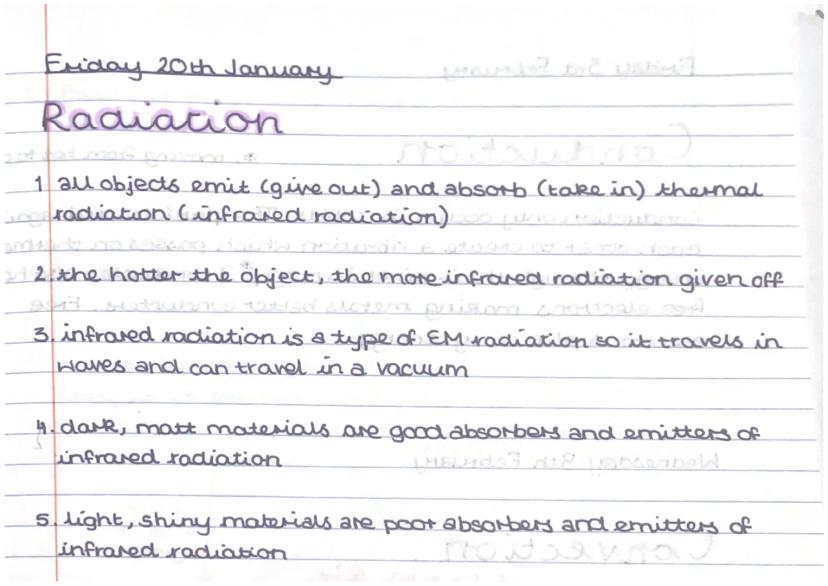 Friday 20th January
Radiation
1 all objects emit (give out) and absorb (take in) thermal
radiation (infrared radiation)
2. the hotter the object, the more infrared radiation given off
3. infrared radiation is a type of EM radiation so it travels in
waves and can travel in a vacuum
4. dark, matt materials are good absorbers and emitters of
infrared radiation
5. light, shiny materials are poor absorbers and emitters of
infrared radiation